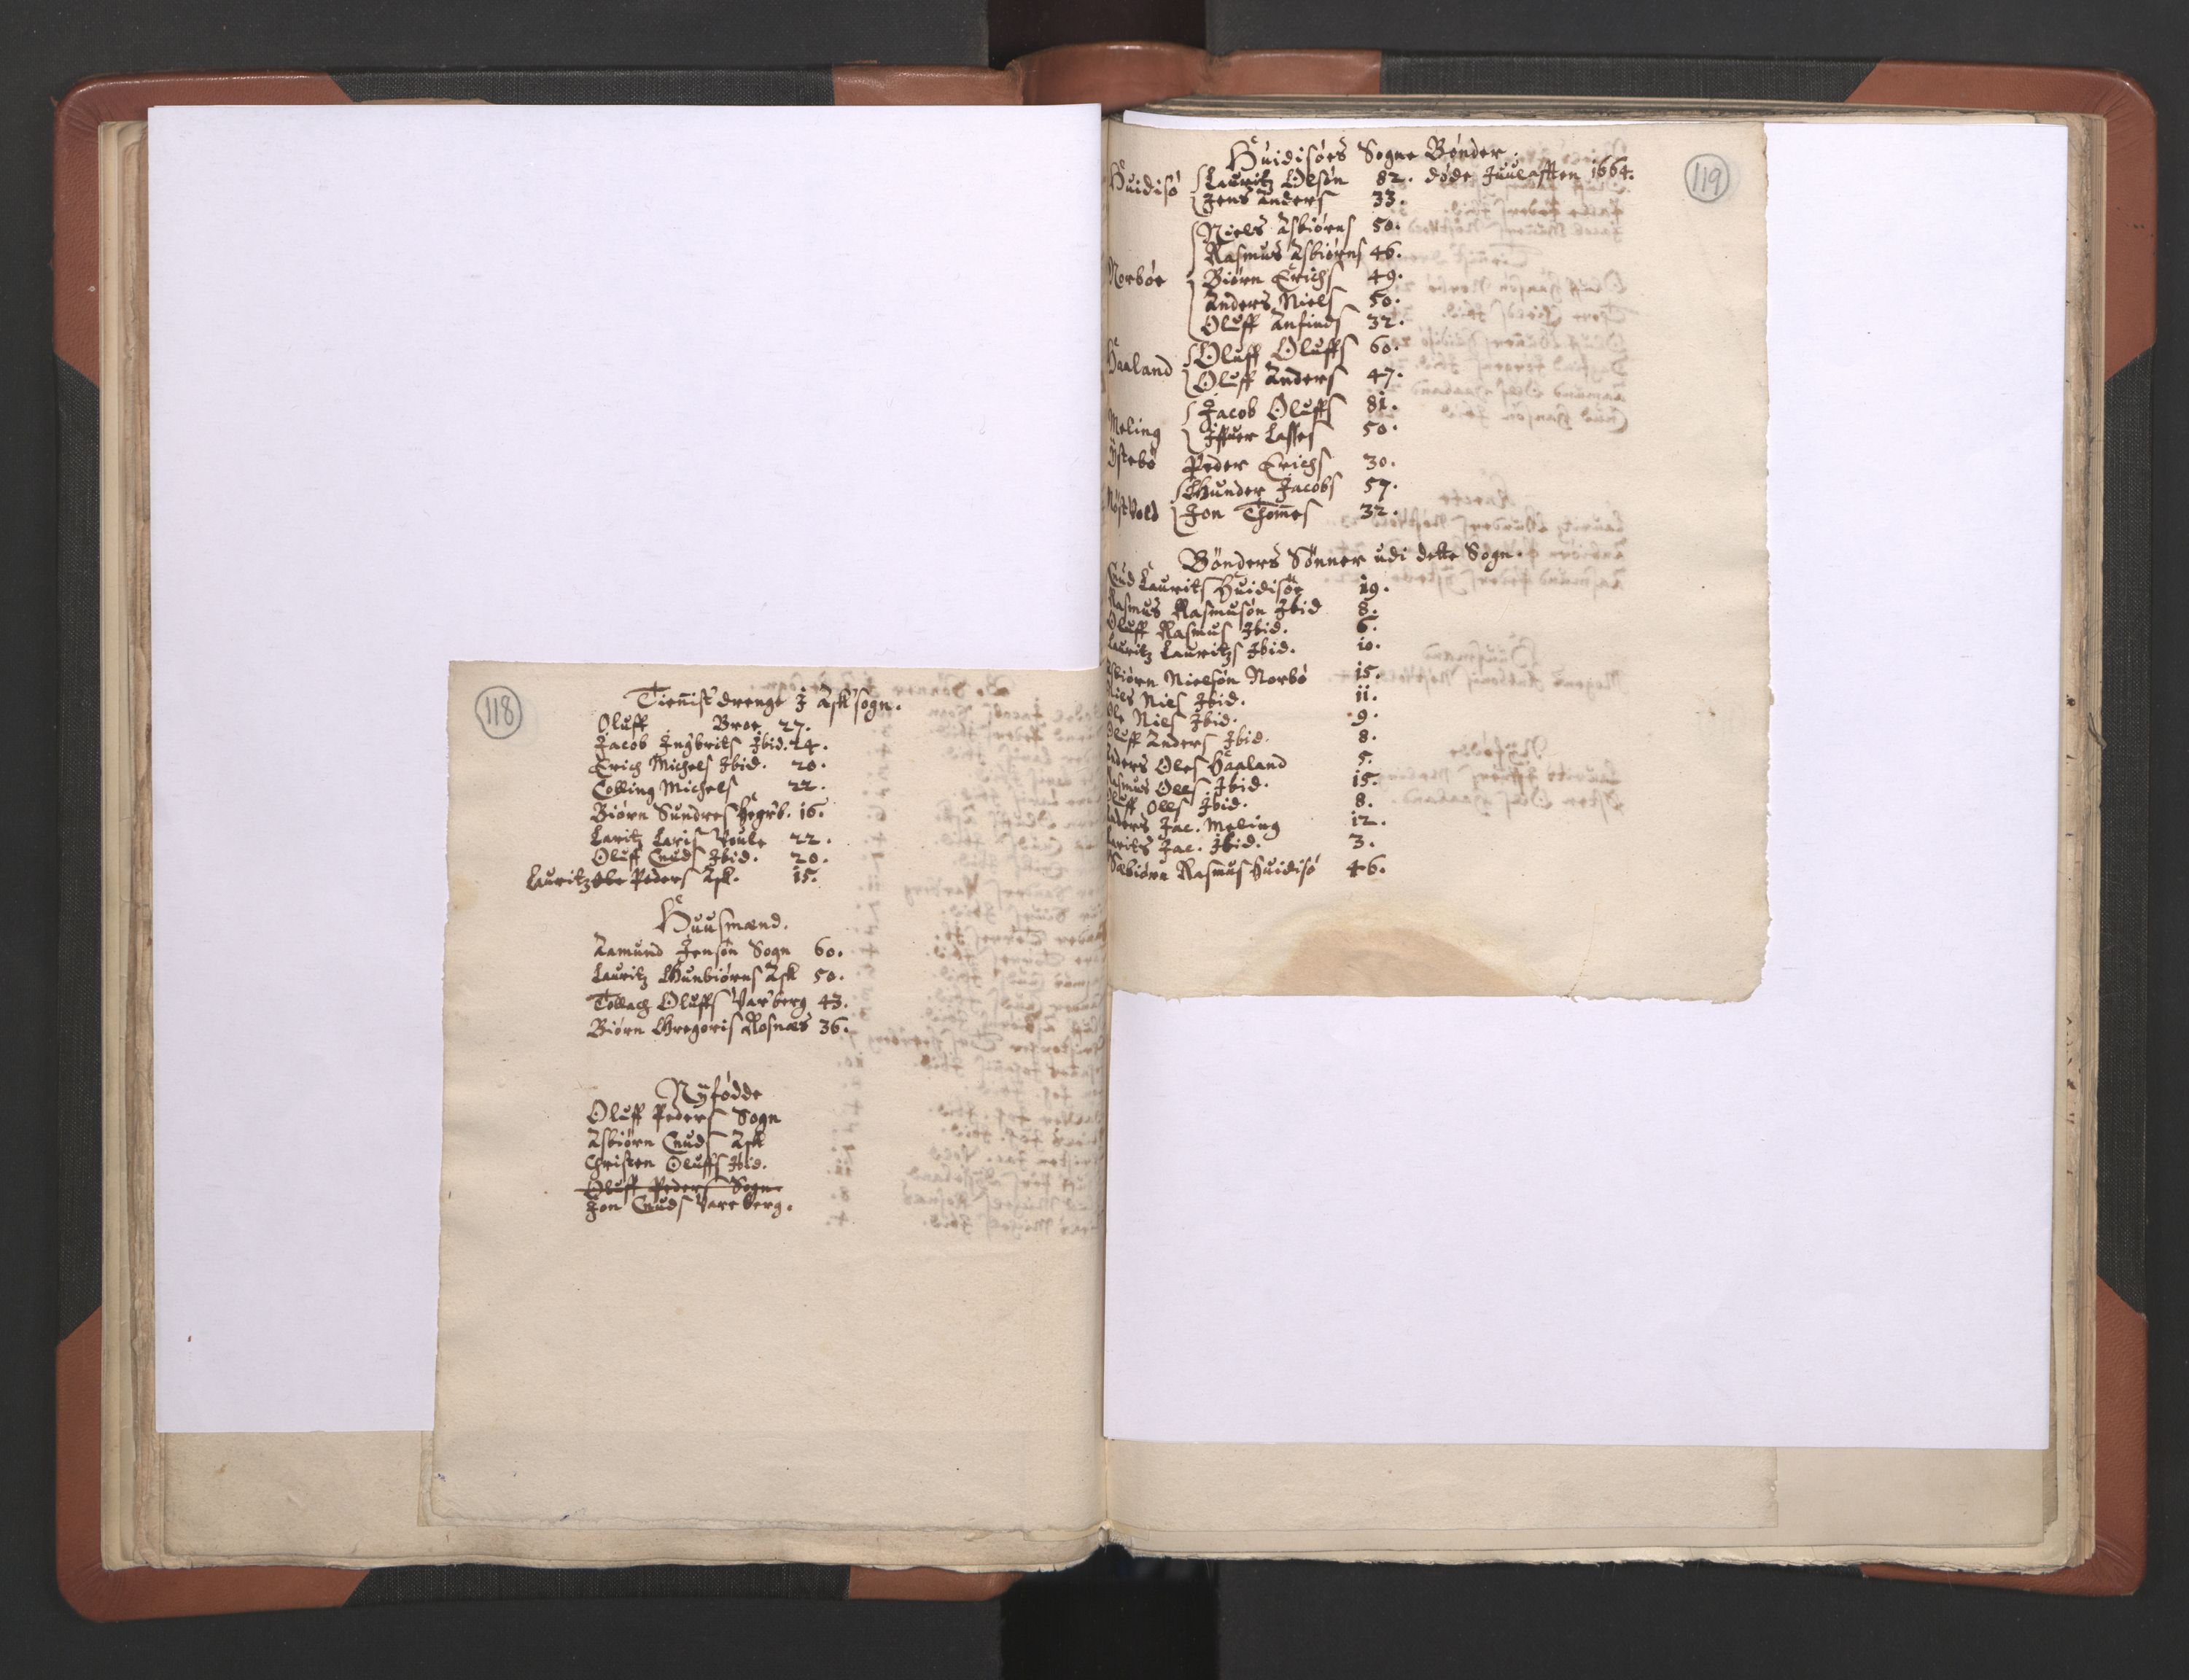 118
Tienist drenge J Ask sogn.
Oluff Broe 27.
Jacob Ingbrits Ibid. 24.
Erich Michels Ibid. 20.
Tolling Michels 22.
Biørn Sundres Hegrb. 16.
Laritz Laris Voule 22.
Oluff Cnuds Ibid. 20.
Lauritz Peders Ask. 15.
Huusmænd.
Aamund Jensøn Sogn 60.
Lauritz Gunbiørns Ask 50.
Tollach Oluffs Varberg 43.
Biørn Gregoris Rosnæs 36.
Nÿfødde
Oluff Peders Sogn
Asbiørn Cnuds Ask
Christen Oluffs Ibid.
Oluff Peders Sogn
Jon Cnuds Vareberg.
119
Huidisøes Sogne Bønder.
Huidisø Lauritz Olsøn 82. døde Juulafften 1664.
Jens Anders 33.
Niels Asbiørns 50.
Rasmus Asbiørns 46.
Norbøe Biørn Erichs 49.
Anders Niels 50.
Oluff Anfinds 32.
Haaland Oluff Oluffs 60.
Oluff Anders 47.
Jacob Oluffs 81.
Meling Iffuer Lasses 50.
Ÿstebø Peder Erichs 30.
Gunder Jacobs 57.
Nøstvold Jon Thomes 32.
Bønders Sønner udi dette Sogn.
Cnud Laurits Huidisøe 19.
Rasmus Rasmusøn Ibid 8.
Oluff Rasmus Ibid. 6.
Lauritz Lauritzs Ibid. 10.
Asbiørn Nielsøn Norbø 15.
Niels Niels Ibid. 11.
Ole Niels Ibid. 9.
Oluff Anders Ibid. 8.
Anders Oles Haaland 5.
Rasmus Olls Ibid. 15.
Oluff Olls Ibid. 8.
Anders Jac. Meling 12.
Laurits Jac. Ibid. 3.
Sæbiørn Rasmus Huidisø 46.